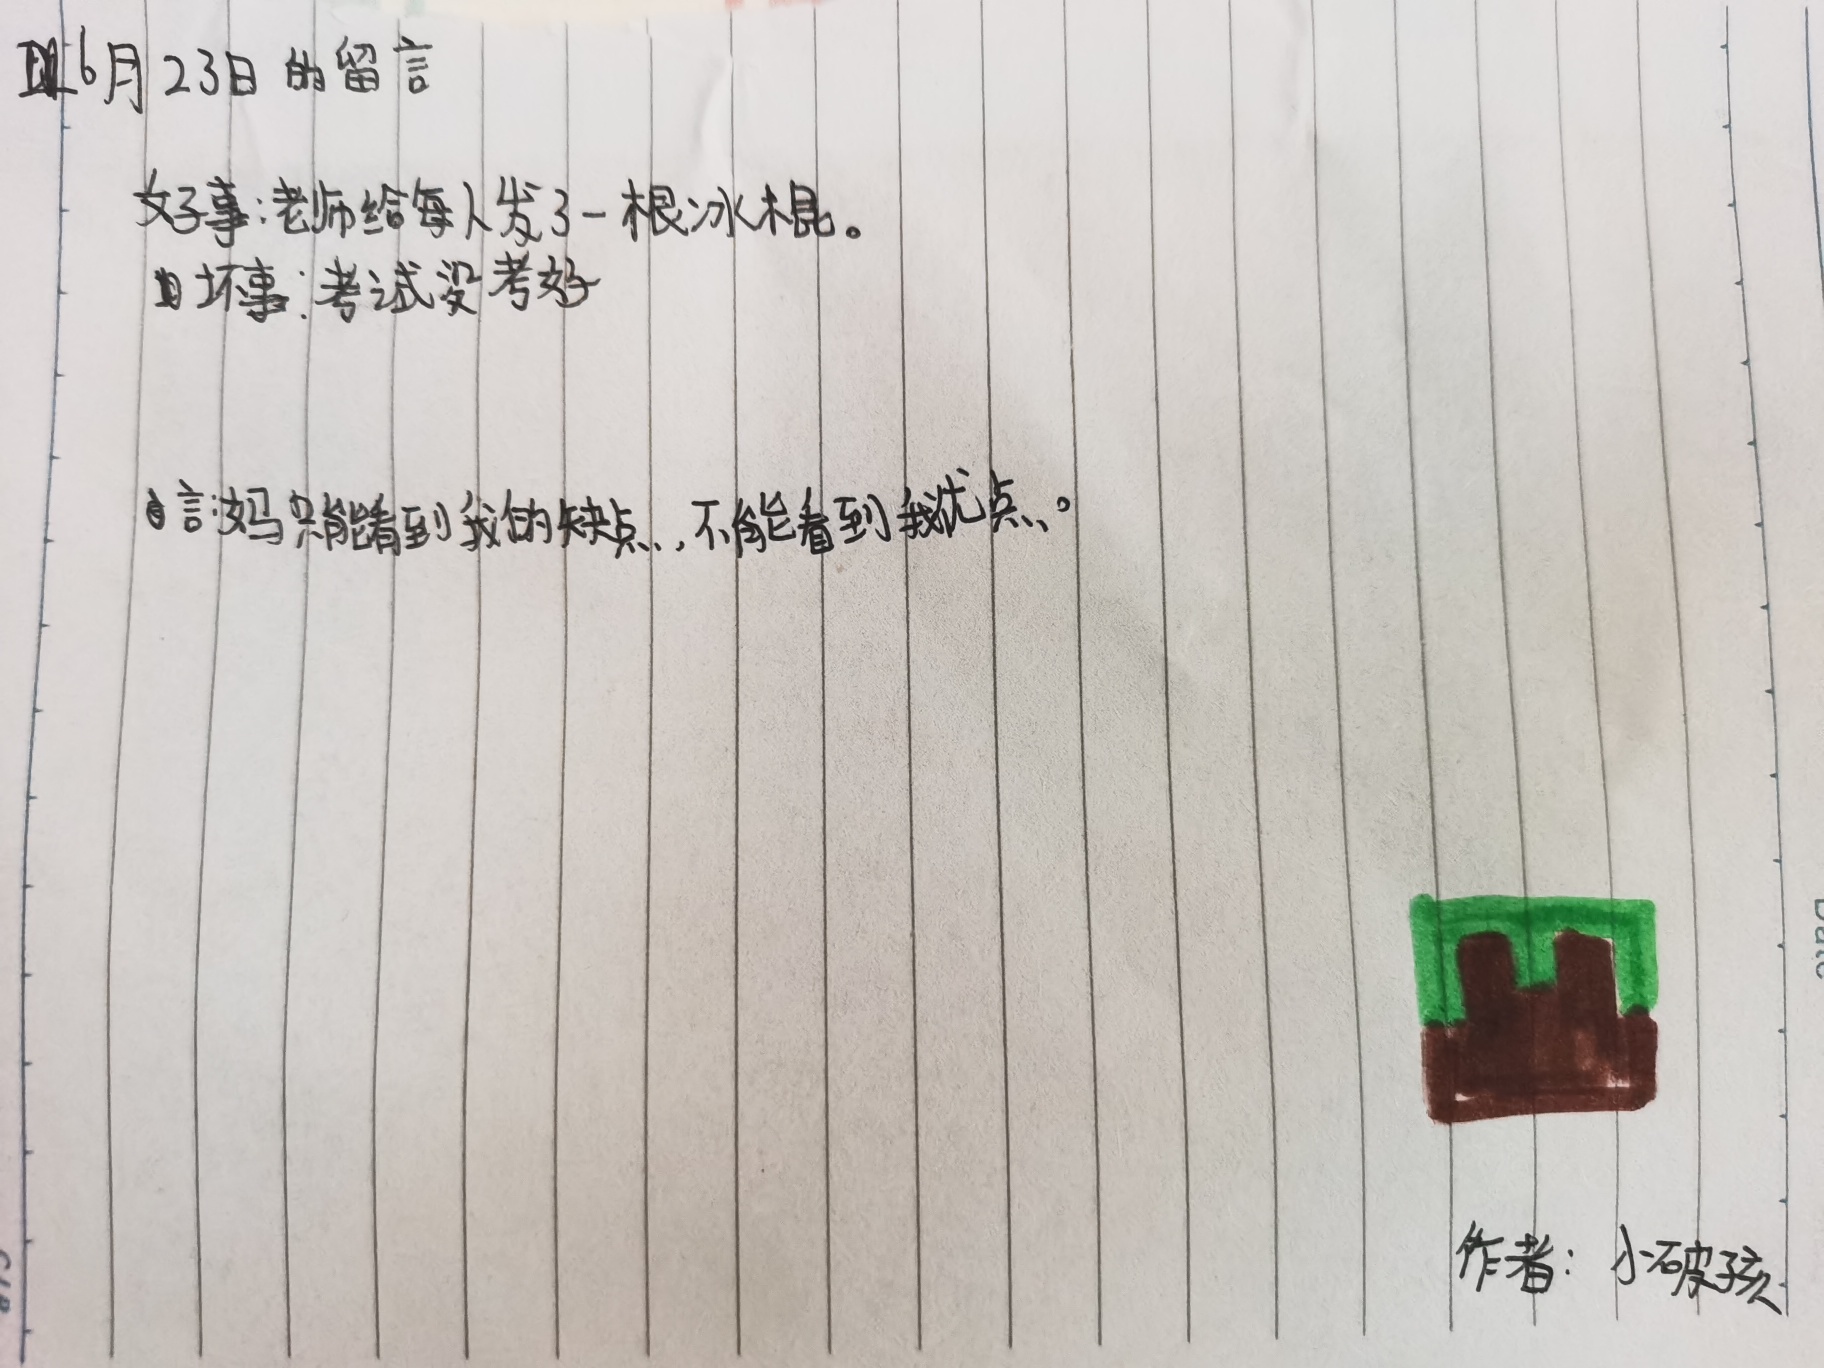 6月23日的留言
好事:老师给每人发了一根冰棍。
坏事:考试没考好
言:妈只能看到我的缺点,不能看到我优点。
作者:小破孩
Date